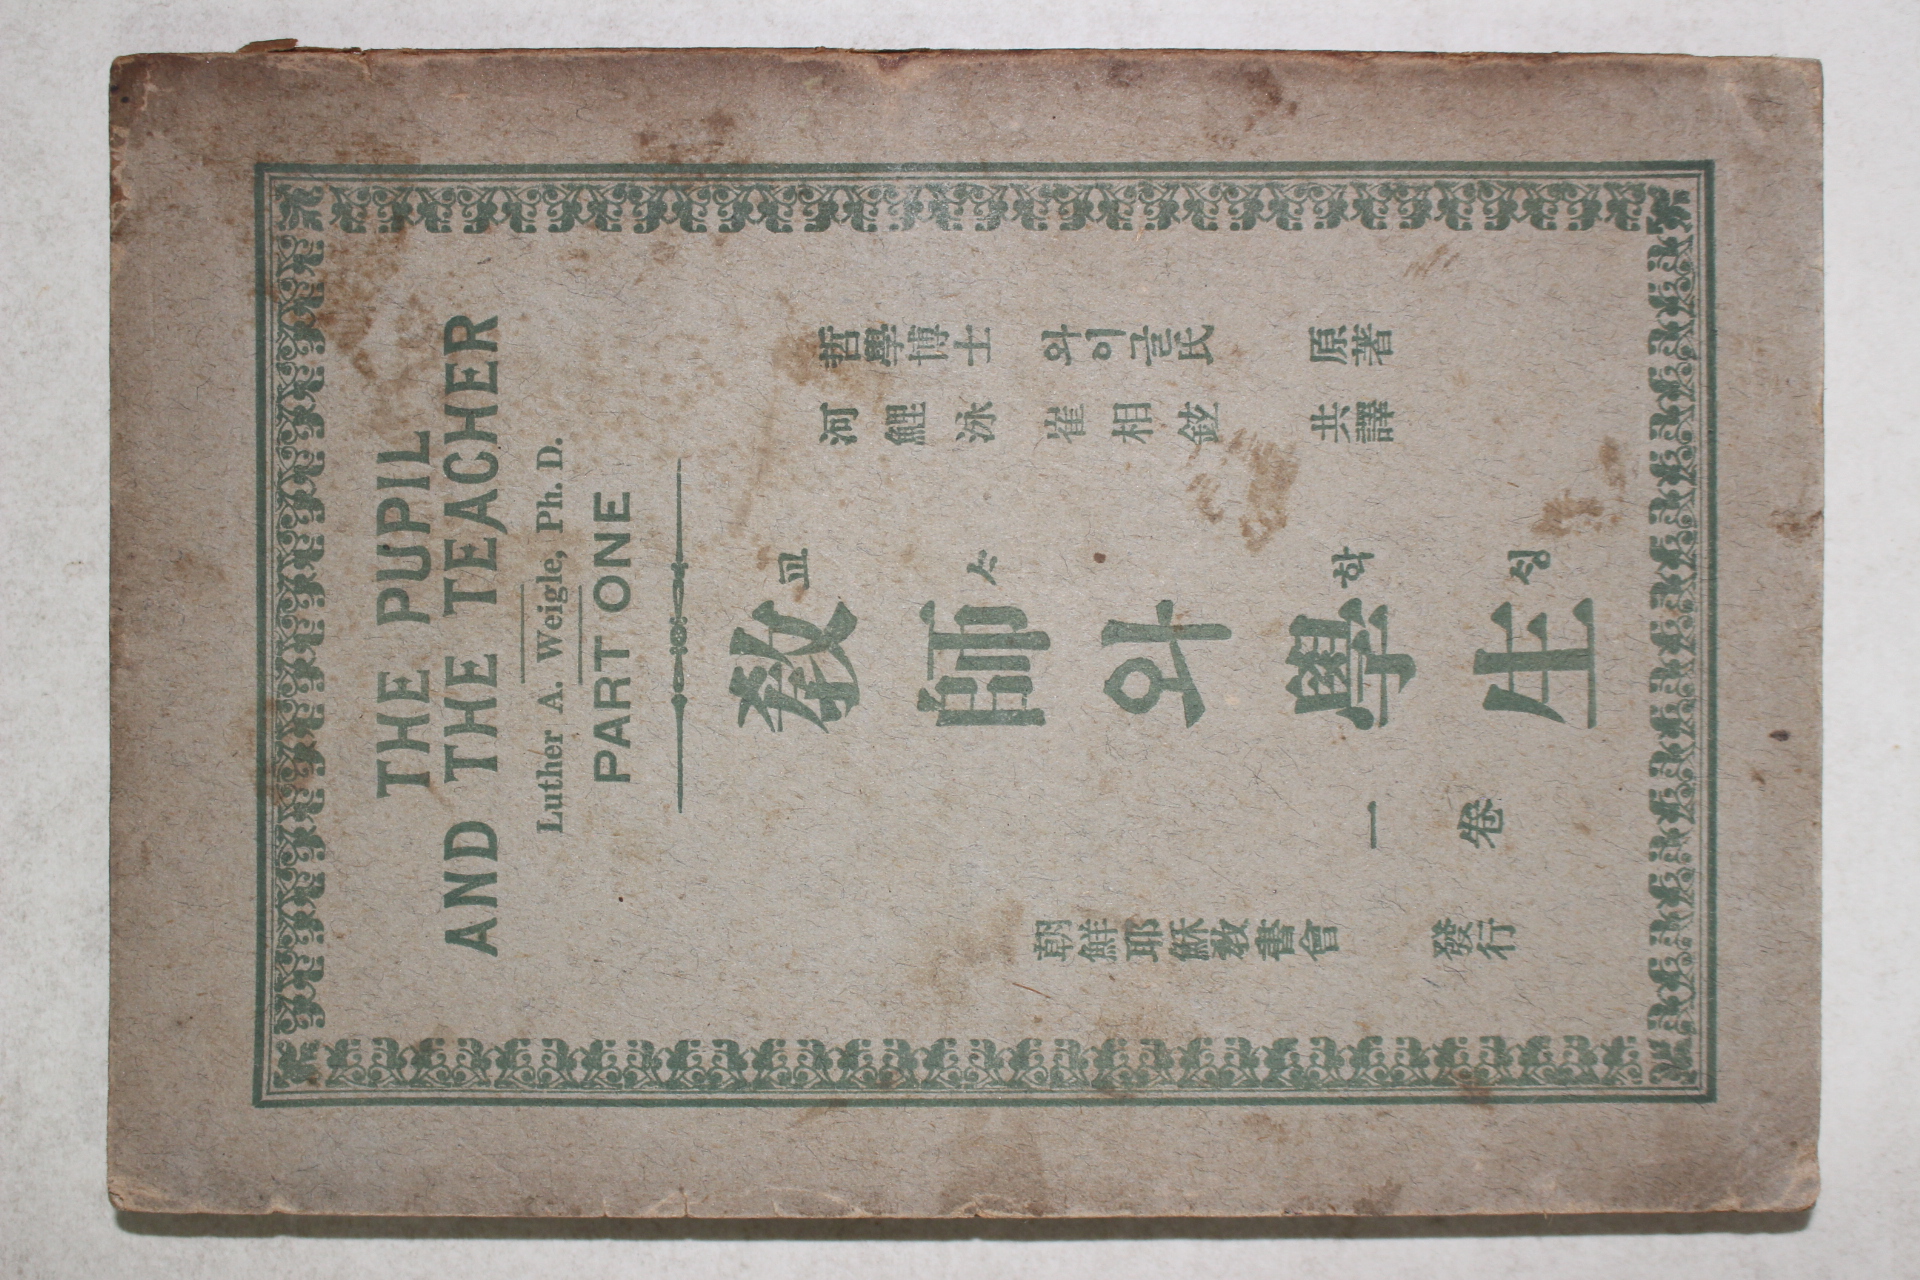 THE PUPIL
AND THE TEACHER
Luther A. Weigle, Ph. D.
PART ONE
哲學博士 와이글氏 原著
河鯉泳 崔相鉉 共譯
교 ᄉᆞ 학 ᄉᆡᆼ
敎師와學生
一卷
朝鮮耶穌敎書會 發行